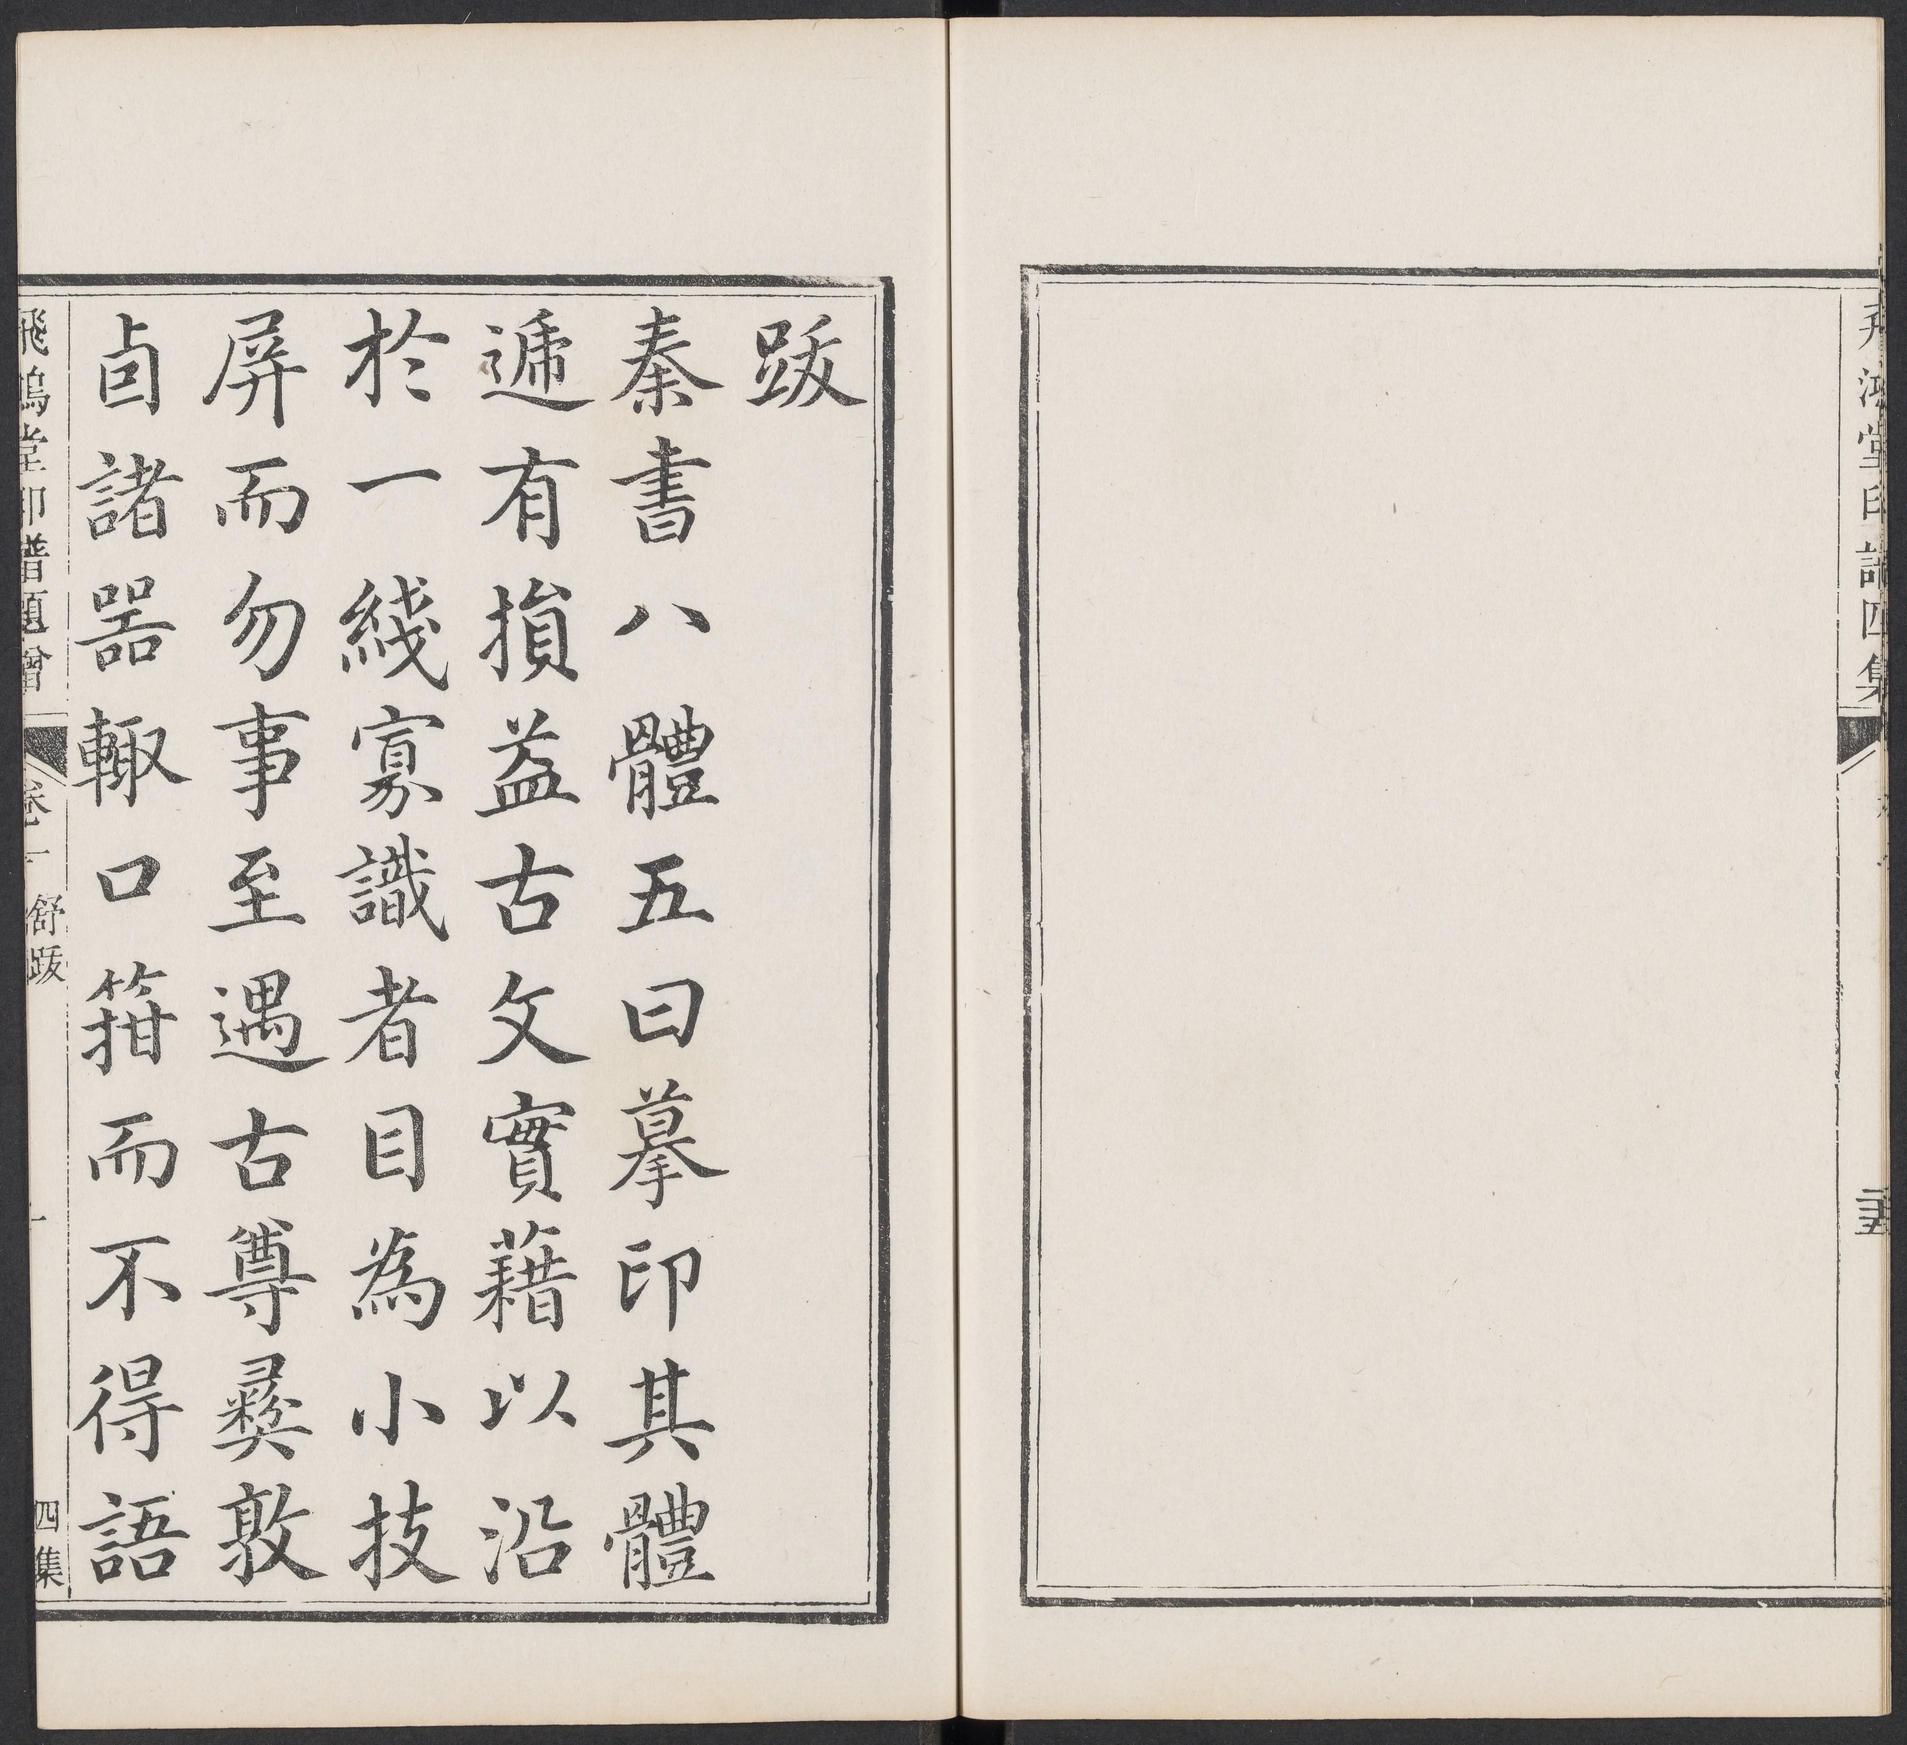 飛鴻堂印譜四集
二五
跋
秦書八體五曰摹印其體
遞有損益古文實藉以沿
於一綫寡識者目為小技
屏而勿事至遇古尊彝敦
卣諸器輙口箝而不得語
飛鴻堂印譜題贈
卷一
舒跋
一
四集